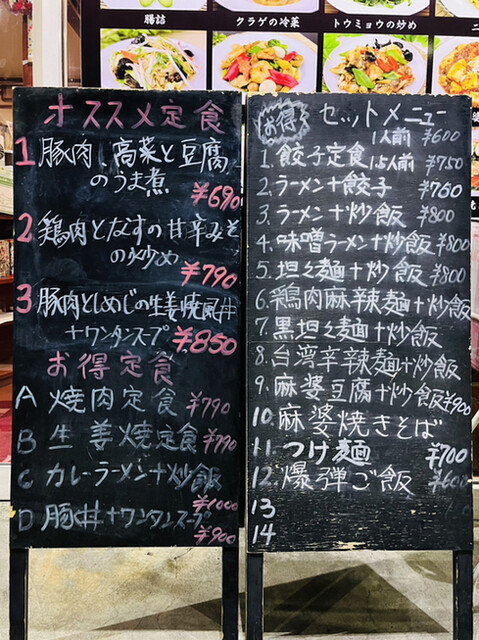 腸詰
クラゲの冷菜
トウミョウの炒め
オススメ定食
1 豚肉、高菜と豆腐
のうま煮
¥690
2 鶏肉となすの甘辛みそ
の炒め
¥790
3 豚肉としめじの生姜焼風丼
+ワンタンスープ ¥850
お得定食
A 焼肉定食 ¥790
B 生姜焼定食 ¥790
C カレーラーメン+炒飯
¥1000
D 豚丼+ワンタンスープ
¥900
お得 セットメニュー
1人前 ¥600
1. 餃子定食 1.5人前 ¥750
2. ラーメン+餃子 ¥760
3. ラーメン+炒飯 ¥800
4. 味噌ラーメン+炒飯 ¥800
5. 坦々麺+炒飯 ¥800
6. 鶏肉麻辣麺+炒飯
7. 黒坦々麺+炒飯
8. 台湾辛辣麺+炒飯
9. 麻婆豆腐+炒飯 ¥900
10. 麻婆焼きそば
11. つけ麺 ¥700
12. 爆弾ご飯 ¥600
13
14